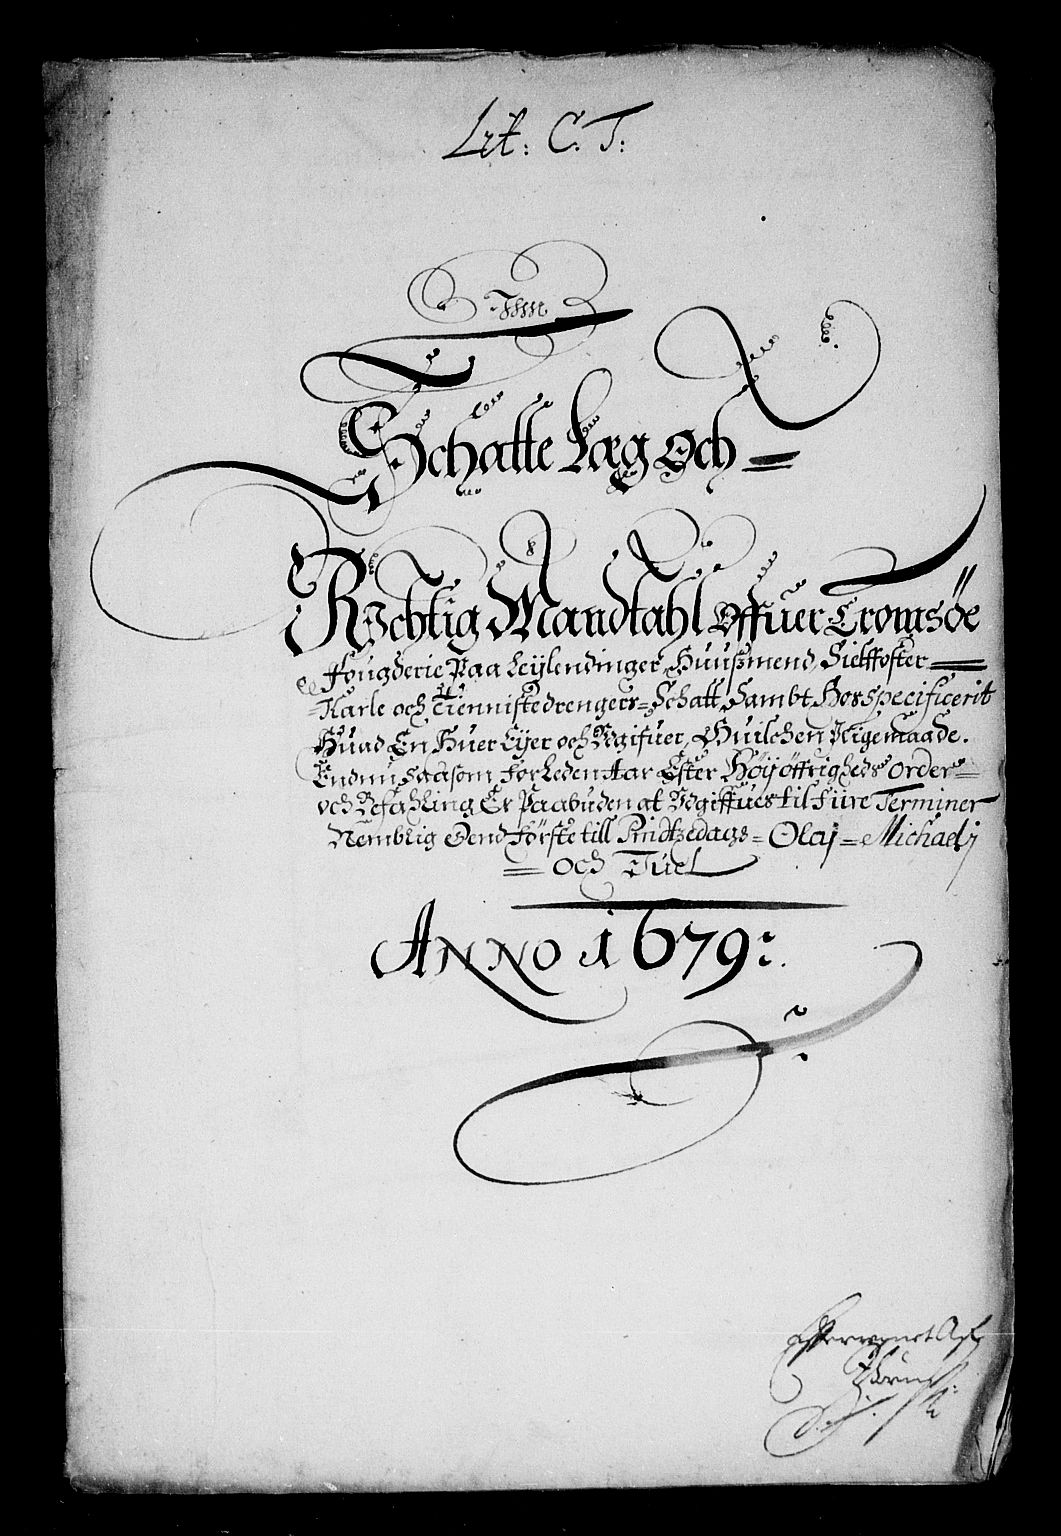 Lit: C. T:
Schatte Læg och
Richtig Mandtahl offuer Tromsøe
Fougderie Paa Leylendinger, Huußmend, Sielffoster
Karle och Tiennistedrengers Schatt, Sambt Hosspecificerit
Huad En Huer Eyer och Udgifuer, Huilchen Iligemaade.
Endnu saasom forleden Aar Efter Høyøffrigheds Order
och Befahling Er Paabuden at Udgiffues til fiire Terminer
Nemblig Dend Første till Pindtzedags = Olaij = Michaelj
och Juel
ANNO 1679: